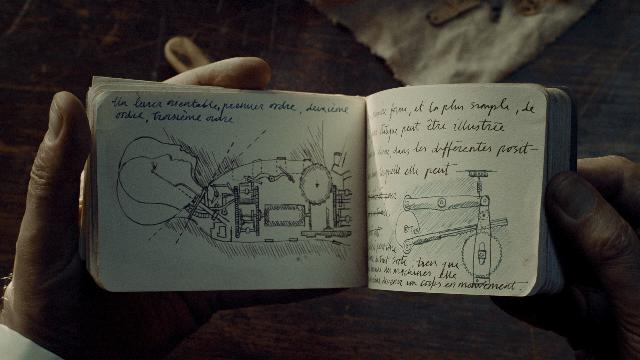 Un levier orientable, premier ordre, deuxième
ordre, troisième ordre
forme, et la plus simple, de
peut être illustrée
dans les différentes posit-
elle peut
sorte, bien que
machines, elle
un corps en mouvement.